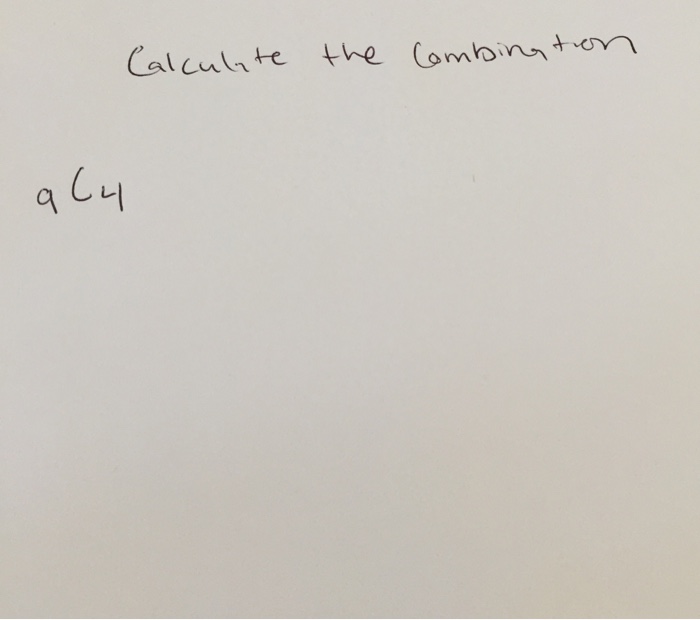 Calculate the Combination
9C4